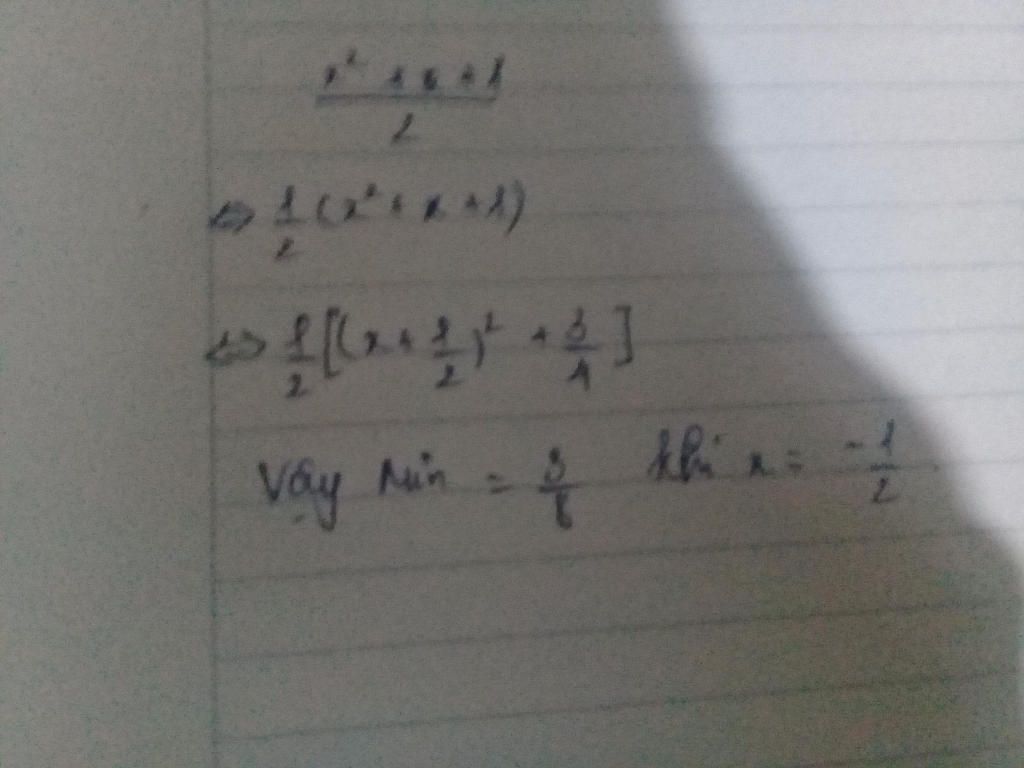 x² + x + 1
2
⇔ 1/2 (x² + x + 1)
⇔ 1/2 [(x + 1/2)² + 3/4]
Vậy Min = 3/8 khi x = -1/2